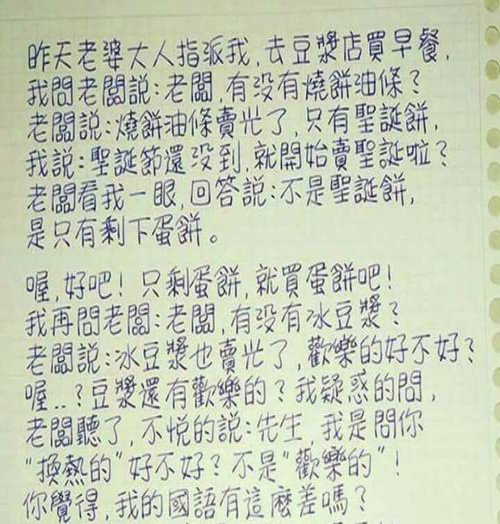 昨天老婆大人指派我,去豆漿店買早餐,
我問老闆說:老闆,有沒有燒餅油條?
老闆說:燒餅油條賣光了,只有聖誕餅,
我說:聖誕節還沒到,就開始賣聖誕啦?
老闆看我一眼,回答說:不是聖誕餅,
是只有剩下蛋餅。
喔,好吧!只剩蛋餅,就買蛋餅吧!
我再問老闆:老闆,有沒有冰豆漿?
老闆說:冰豆漿也賣光了,歡樂的好不好?
喔..?豆漿還有歡樂的?我疑惑的問,
老闆聽了,不悅的說:先生,我是問你
"換熱的"好不好?不是"歡樂的"!
你覺得,我的國語有這麼差嗎?